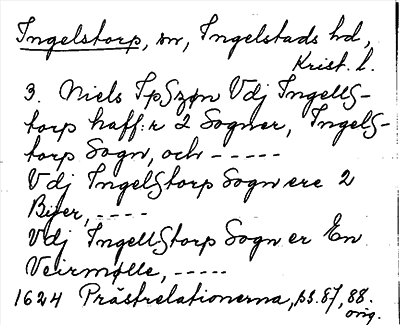 Ingelstorp, sn, Ingelstads hd,
Krist. l.
3. Niels Ipszøn Vdj Ingellß-
torp haff:r 2 Sogner, Ingelß-
torp Sogn, och - - - - -
Vdj Ingelßtorp Sogn ere 2
Byer, - - - -
Vdj Ingellßtorp Sogn er En
Veirmølle, - - - - -
1624 Prästrelationerna, ps. 87, 88.
orig.